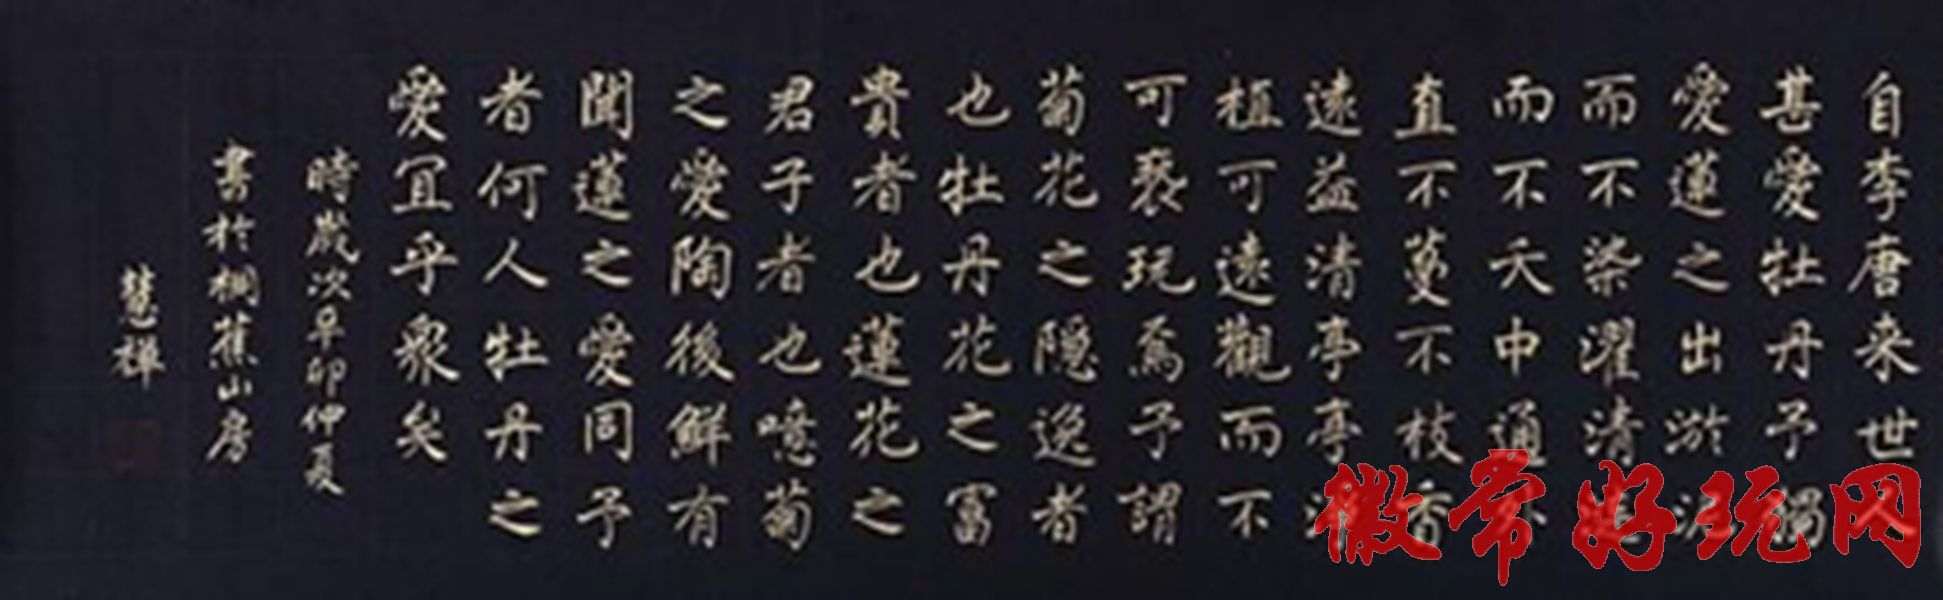 自李唐来世人
甚愛牡丹予獨
愛蓮之出淤泥
而不染濯清漣
而不夭中通外
直不蔓不枝香
遠益清亭亭淨
植可遠觀而不
可褻玩焉予謂
菊花之隱逸者
也牡丹花之富
貴者也蓮花之
君子者也噫菊
之愛陶後鮮有
聞蓮之愛同予
者何人牡丹之
愛宜乎眾矣
時歲次辛卯仲夏
書於桐蕉山房
慧禅
徽常好玩网